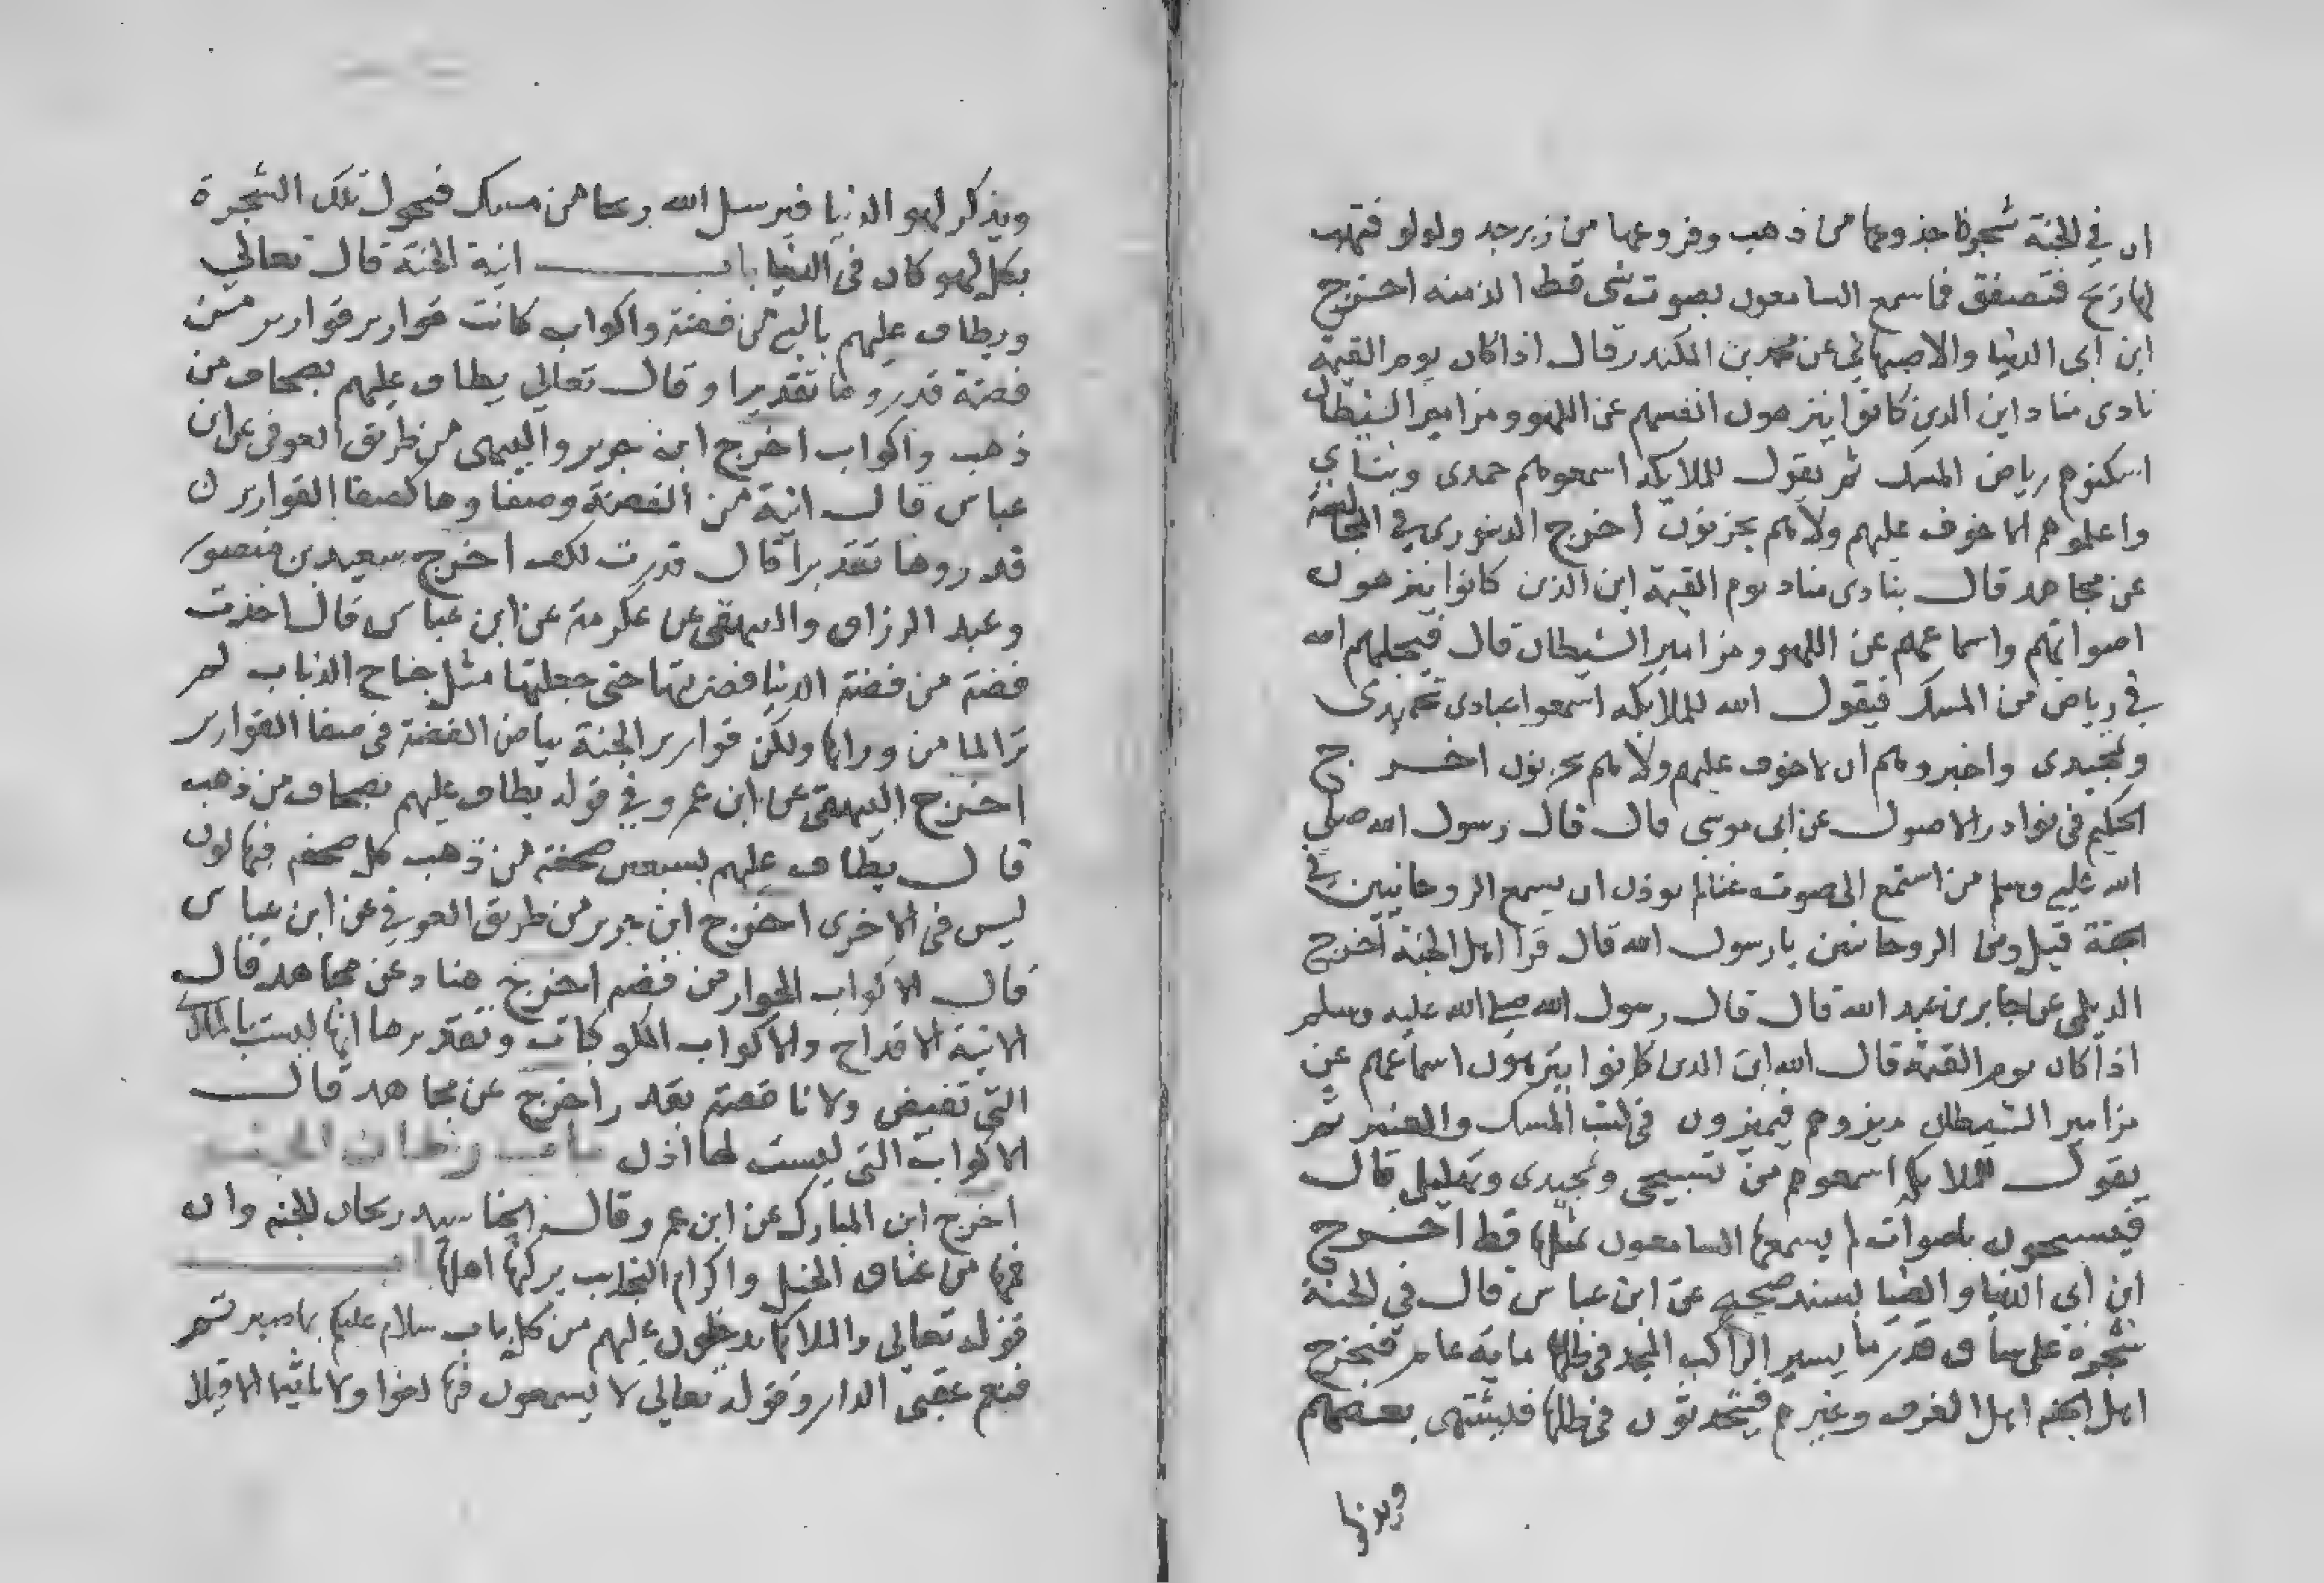 ان في الجنة شجرة جذوعها من ذهب وفروعها من زبرجد ولولو فتهب
لها ريح فتصفق فما سمع السامعون بصوت شي قط الذ منه اخرج
ابن ابى الدنيا والاصبهاني عن محمد بن المنكدر قال اذا كان يوم القيمة
نادى مناد اين الذين كانوا ينزهون انفسهم عن اللهو ومزامير الشيطان
اسكنوهم رياض المسك ثم يقول للملايكة اسمعوهم حمدى وثناي
واعلموهم الا خوف عليهم ولا هم يحزنون اخرج الدينورى في المجالسة
عن مجاهد قال ينادى مناد يوم القيمة اين الذين كانوا ينزهون
اصواتهم واسماعهم عن اللهو ومزامير الشيطان قال فيجعلهم الله
في رياض من المسك فيقول الله للملايكه اسمعوا عبادى تحميدى
وتمجيدى واخبروهم ان لا خوف عليهم ولا هم يحزنون اخرج
الحكيم فى نوادر الاصول عن ابى موسى قال قال رسول الله صلي
الله عليه وسلم من استمع الى صوت غنا لم يوذن ان يسمع الروحانيين في
الجنة قيل ومن الروحانيين يارسول الله قال قرا اهل الجنة اخرج
الديلمى عن جابر بن عبد الله قال قال رسول الله صلى الله عليه وسلم
اذا كان يوم القيمة قال الله اين الذين كانوا ينزهون اسماعهم عن
مزامير الشيطان ميزوهم فيميزون فى كثب المسك والعنبر ثم
يقول للملايكة اسمعوهم من تسبيحى وتمجيدى وتهليلى قال
فيسبحون باصوات لم يسمع السامعون بمثلها قط اخرج
ابن ابي الدنيا والضيا بسند صحيح عن ابن عباس قال في الجنة
شجرة على ساق قدر ما يسير الراكب المجد فى ظلها ماية عام فيخرج
اهل الجنه اهل الغرف وغيرهم فيتحدثون فى ظلها فيشتهى بعضهم
ويذكر لهو الدنيا فيرسل الله ريحا من مسك فتحول تلك الشجرة
بكل لهو كان فى الدنيا باب انية الجنة قال تعالي
ويطاف عليهم بانية من فضة واكواب كانت قوارير قوارير من
فضة قدروها تقديرا وقال تعالي يطاف عليهم بصحاف من
ذهب واكواب اخرج ابن جرير والبيهقى من طريق العوفى عن ابن
عباس قال انية من الفضة وصفاوها كصفا القوارير
قدروها تقديرا قال قدرت للكف اخرج سعيد بن منصور
وعبد الرزاق والبيهقى عن عكرمة عن ابن عباس قال لو اخذت
فضة من فضة الدنيا فضربتها حتى جعلتها مثل جناح الذباب لم
تر الما من ورائها ولكن قوارير الجنة بياض الفضة فى صفا القوارير
اخرج البيهقى عن ابن عمرو في قوله يطاف عليهم بصحاف من ذهب
قال يطاف عليهم بسبعين صحفة من ذهب كل صحفه فيها لون
ليس فى الاخرى اخرج ابن جرير من طريق العوفي عن ابن عباس
قال الاكواب الجرار من فضه اخرج هناد عن مجاهد قال
الانية الاقداح والاكواب المكوكبات وتقديرها انها ليست بالملاى
التى تفيض ولا ناقصة بقدر اخرج عن مجاهد قال
الاكواب التى ليست لها اذن باب ريحان الجنة
اخرج ابن المبارك عن ابن عمرو قال الحنا سيد ريحان الجنه وان
فيها من عتاق الخيل واكرام النجايب يركبها اهلها
قوله تعالى والملايكة يدخلون عليهم من كل باب سلام عليكم بما صبرتم
فنعم عقبى الدار وقوله تعالى لا يسمعون فيها لغوا ولا تاثيما الا قيلا